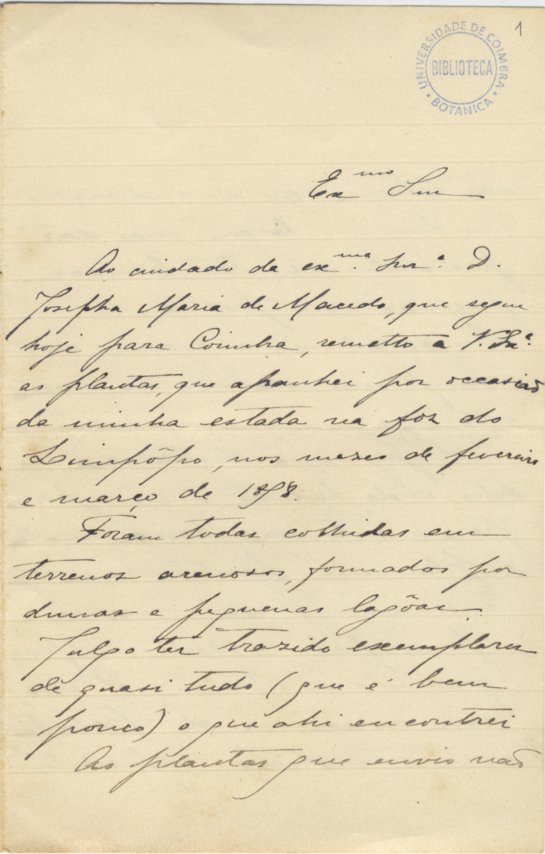 1
UNIVERSIDADE DE COIMBRA
BIBLIOTECA
BOTANICA
Exmo Snr
Ao cuidado da exma. Snra. D.
Josepha Maria de Macedo, que segue
hoje para Coimbra, remetto a V. Exa.
as plantas, que apanhei por occasião
da minha estada na foz do
Limpôpo, nos mezes de fevereiro
e março de 1898.
Foram todas colhidas em
terrenos arenosos, formados por
dunas e pequenas lagôas.
Julgo ter trazido exemplares
de quasi tudo (que é bem
pouco) o que ahi encontrei
As plantas que envio não